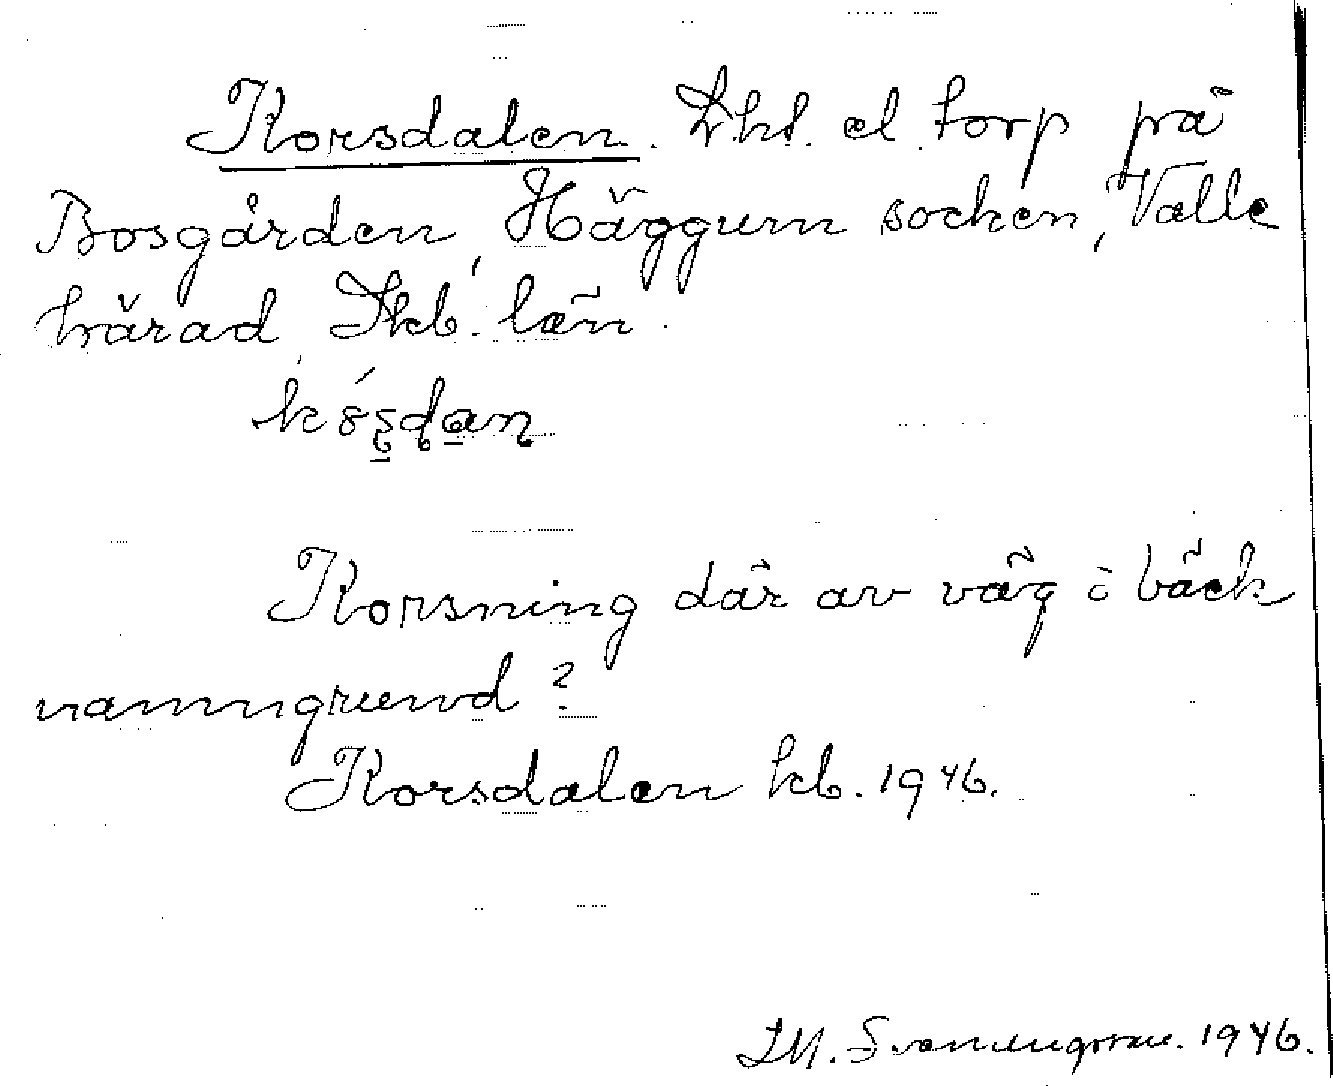 Korsdalen. Lht. el. torp på
Bosgården, Häggum socken, Valle
härad, Skb. län.
Korsning där av väg o bäck
namngrund?
Korsdalen kb. 1946.
I.M. Svenungsson. 1946.